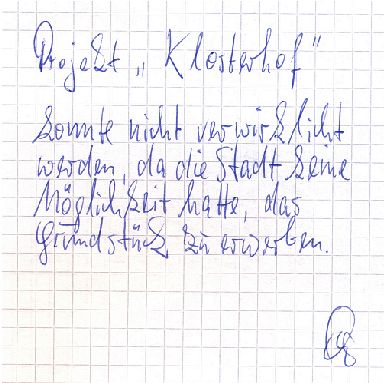 Projekt „Klosterhof"
konnte nicht verwirklicht
werden, da die Stadt keine
Möglichkeit hatte, das
Grundstück zu erwerben.